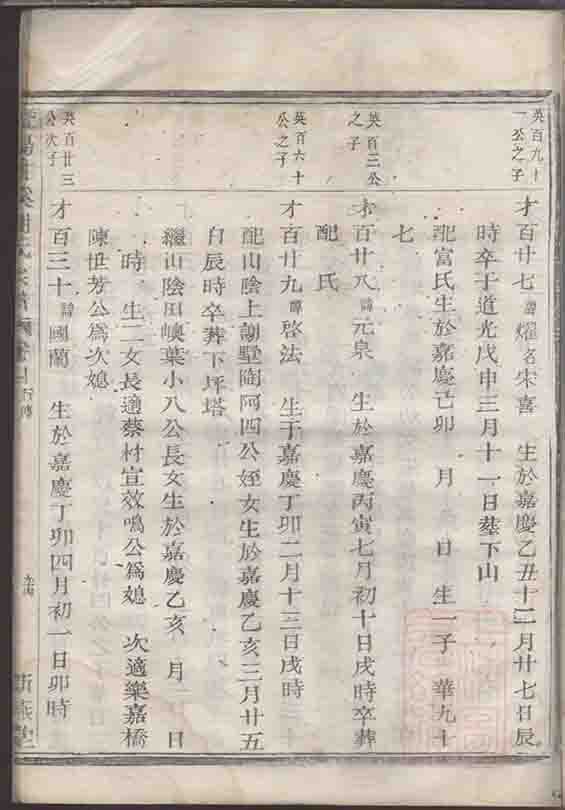 英百九十
一公之子
才百廿七 諱 耀 名 宋喜 生於嘉慶乙丑十二月廿七日辰
時卒于道光戊申三月十一日塟下山
配富氏生於嘉慶己卯 月 日 生一子 華九十
七
英百二公
之子
才百廿八 諱 元泉 生於嘉慶丙寅七月初十日戌時卒葬
配 氏
英百六十
公之子
才百廿九 諱 啓法 生于嘉慶丁卯二月十三日戌時
配山陰上 墅 阿四公姪女生於嘉慶乙亥三月廿五
日辰時卒葬下坪塔
繼山陰田 葉小八公長女生於嘉慶乙亥 月 日
時 生二女長適蔡村宣效鳴公爲媳 次適樂嘉橋
陳世芳公爲次媳
英百廿三
公次子
才百三十 諱 國蘭 生於嘉慶丁卯四月初一日卯時